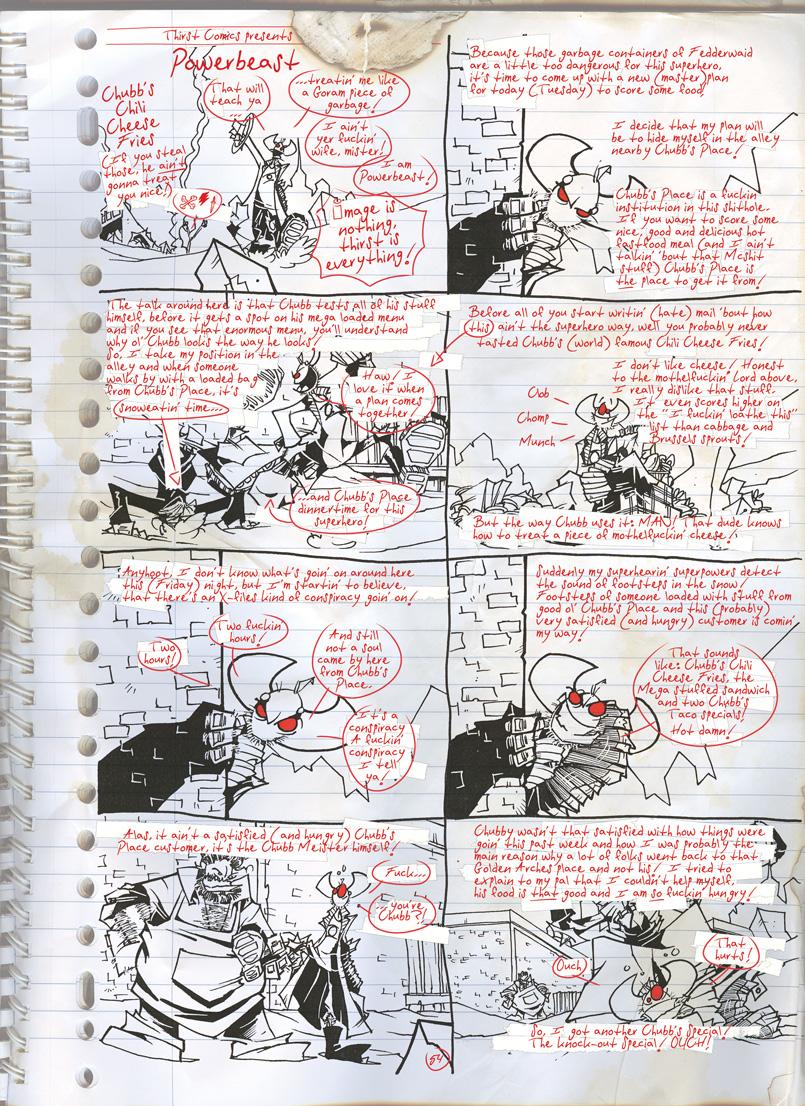 Thirst Comics presents
Powerbeast
Chubb's
Chili
Cheese
Fries
(If you steal
those, he ain't
gonna treat
you nice!)
That will
teach ya ...
...treatin' me like
a Goram piece of
garbage!
I ain't
yer fuckin'
wife, mister!
I am
Powerbeast!
Image is
nothing,
thirst is
everything!
Because those garbage containers of Fedderwaid
are a little too dangerous for this superhero,
it's time to come up with a new (master)plan
for today (Tuesday) to score some food,
I decide that my plan will
be to hide myself in the alley
nearby Chubb's Place!
Chubb's Place is a fuckin
institution in this shithole.
If you want to score some
nice, good and delicious hot
fastfood meal (and I ain't
talkin' 'bout that Mcshit
stuff) Chubb's Place is
the place to get it from!
The talk around here is that Chubb tests all of his stuff
himself, before it gets a spot on his mega loaded menu
and if you see that enormous menu, you'll understand
why ol' Chubb looks the way he looks!
So, I take my position in the
alley and when someone
walks by with a loaded bag
from Chubb's Place, it's
snoweatin' time...
Haw! I
love it when
a plan comes
together!
...and Chubb's Place
dinnertime for this
superhero!
Before all of you start writin' (hate) mail 'bout how
(this) ain't the superhero way, well you probably never
tasted Chubb's (world) famous Chili Cheese Fries!
I don't like cheese! Honest
to the mothelfuckin' Lord above,
I really dislike that stuff.
It even scores higher on
the "I fuckin' loathe this"
list than cabbage and
Brussels sprouts!
Chomp
Munch
But the way Chubb uses it: MAN! That dude knows
how to treat a piece of mothelfuckin' cheese!
Anyhoot, I don't know what's goin' on around here
this (Friday) night, but I'm startin' to believe,
that there's an X-files kind of conspiracy goin' on!
Two
hours!
Two fuckin'
hours!
And still
not a soul
came by here
from Chubb's
Place.
It's a
conspiracy
A fuckin'
conspiracy
I tell
ya!
Suddenly my superhearin' superpowers detect
the sound of footsteps in the snow!
Footsteps of someone loaded with stuff from
good ol' Chubb's Place and this (probably)
very satisfied (and hungry) customer is comin'
my way!
That sounds
like: Chubb's Chili
Cheese Fries, the
Mega stuffed sandwich
and two Chubb's
Taco specials!
Hot damn!
Alas, it ain't a satisfied (and hungry) Chubb's
Place customer, it's the Chubb Meister himself!
Fuck...
...you're
Chubb?!
54
Chubby wasn't that satisfied with how things were
goin' this past week and how I was probably the
main reason why a lot of folks went back to that
Golden Arches place and not his! I tried to
explain to my pal that I couldn't help myself,
his food is that good and I am so fuckin' hungry!
Ouch
That
hurts!
So, I got another Chubb's Special!
The knock-out Special! OUCH!